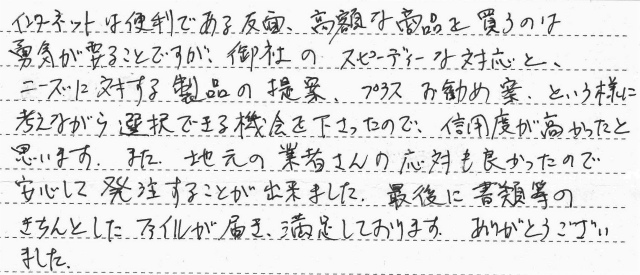 インターネットは便利である反面、高額な商品を買うのは
勇気が要ることですが、御社の スピーディーな対応と、
ニーズに対する製品の提案、プラス お勧め案、という様に
考えながら選択できる機会を下さったので、信用度が高かったと
思います。また、地元の業者さんの応対も良かったので
安心して発注することが出来ました。最後に書類等の
きちんとしたファイルが届き、満足しております。ありがとうござい
ました。